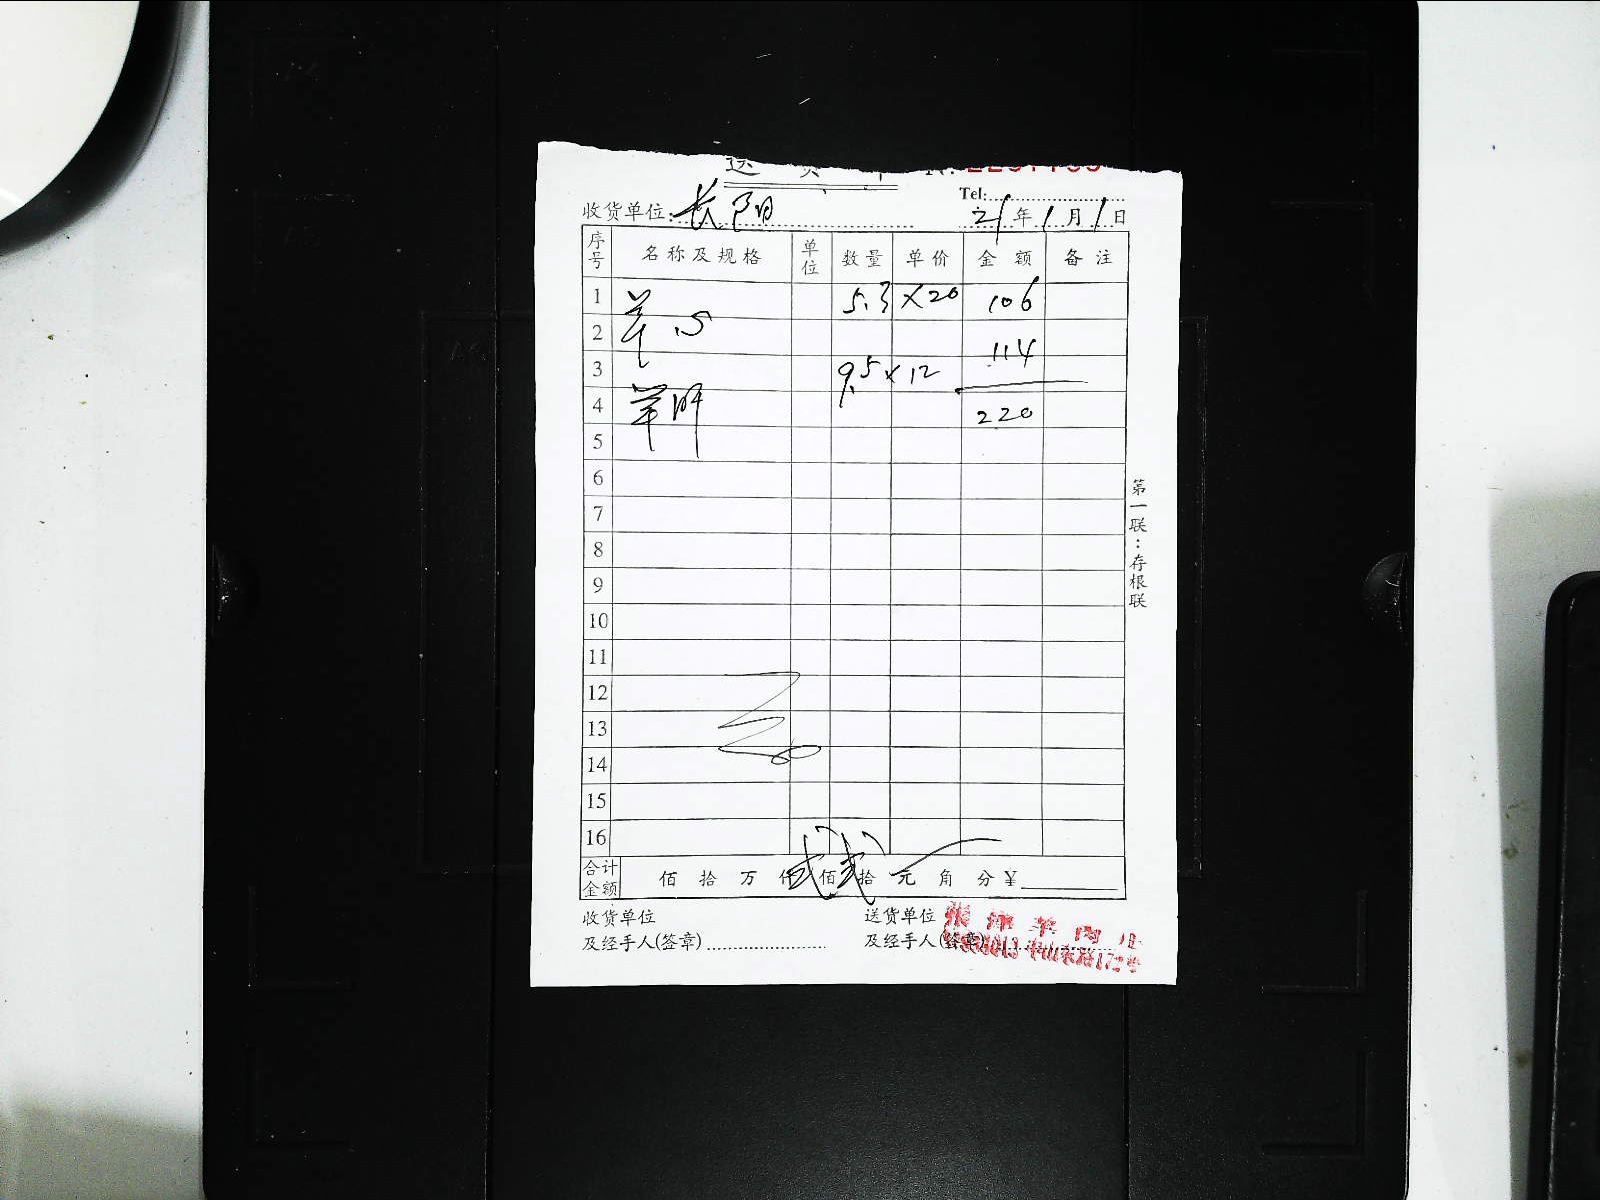 收货单位: 长阳
Tel:
21年1月1日
序号 名称及规格 单位 数量 单价 金额 备注
1 羊心 5.3 ×20 106
2 114
3 9.5 ×12
4 羊肝 220
5
6
7
8
9
10
11
12
13
14
15
16
合计金额 佰 拾 万 仟 贰 佰 贰 拾 元 角 分 ¥
收货单位 送货单位
及经手人(签章) 及经手人(签章)
第一联:存根联